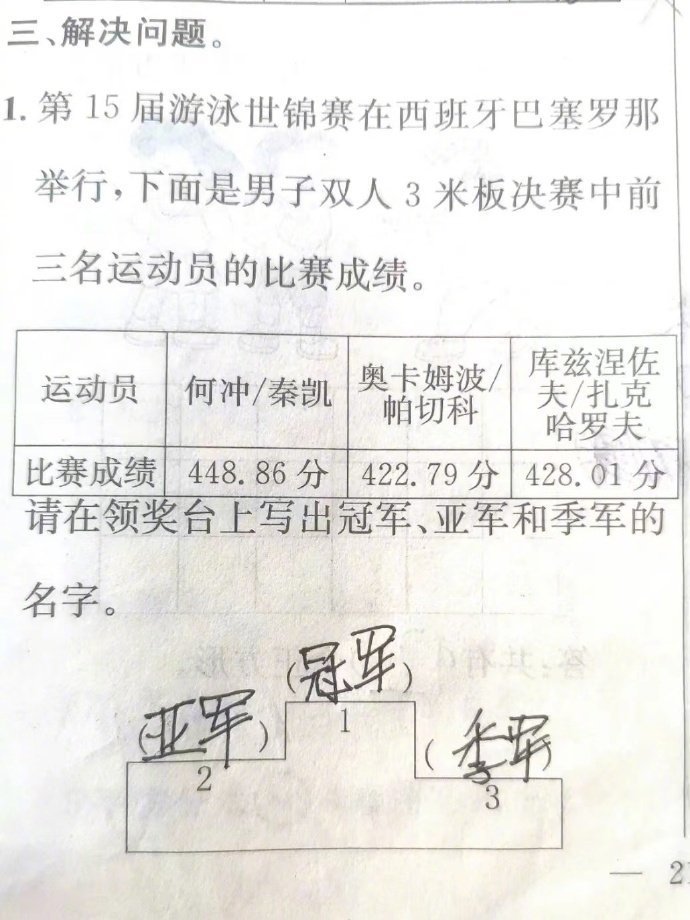 三、解决问题。
1. 第 15 届游泳世锦赛在西班牙巴塞罗那
举行,下面是男子双人 3 米板决赛中前
三名运动员的比赛成绩。
运动员 何冲/秦凯 奥卡姆波/帕切科 库兹涅佐夫/扎克哈罗夫
比赛成绩 448.86 分 422.79 分 428.01 分
请在领奖台上写出冠军、亚军和季军的
名字。
(冠军)
1
(亚军)
2
(季军)
3
— 21